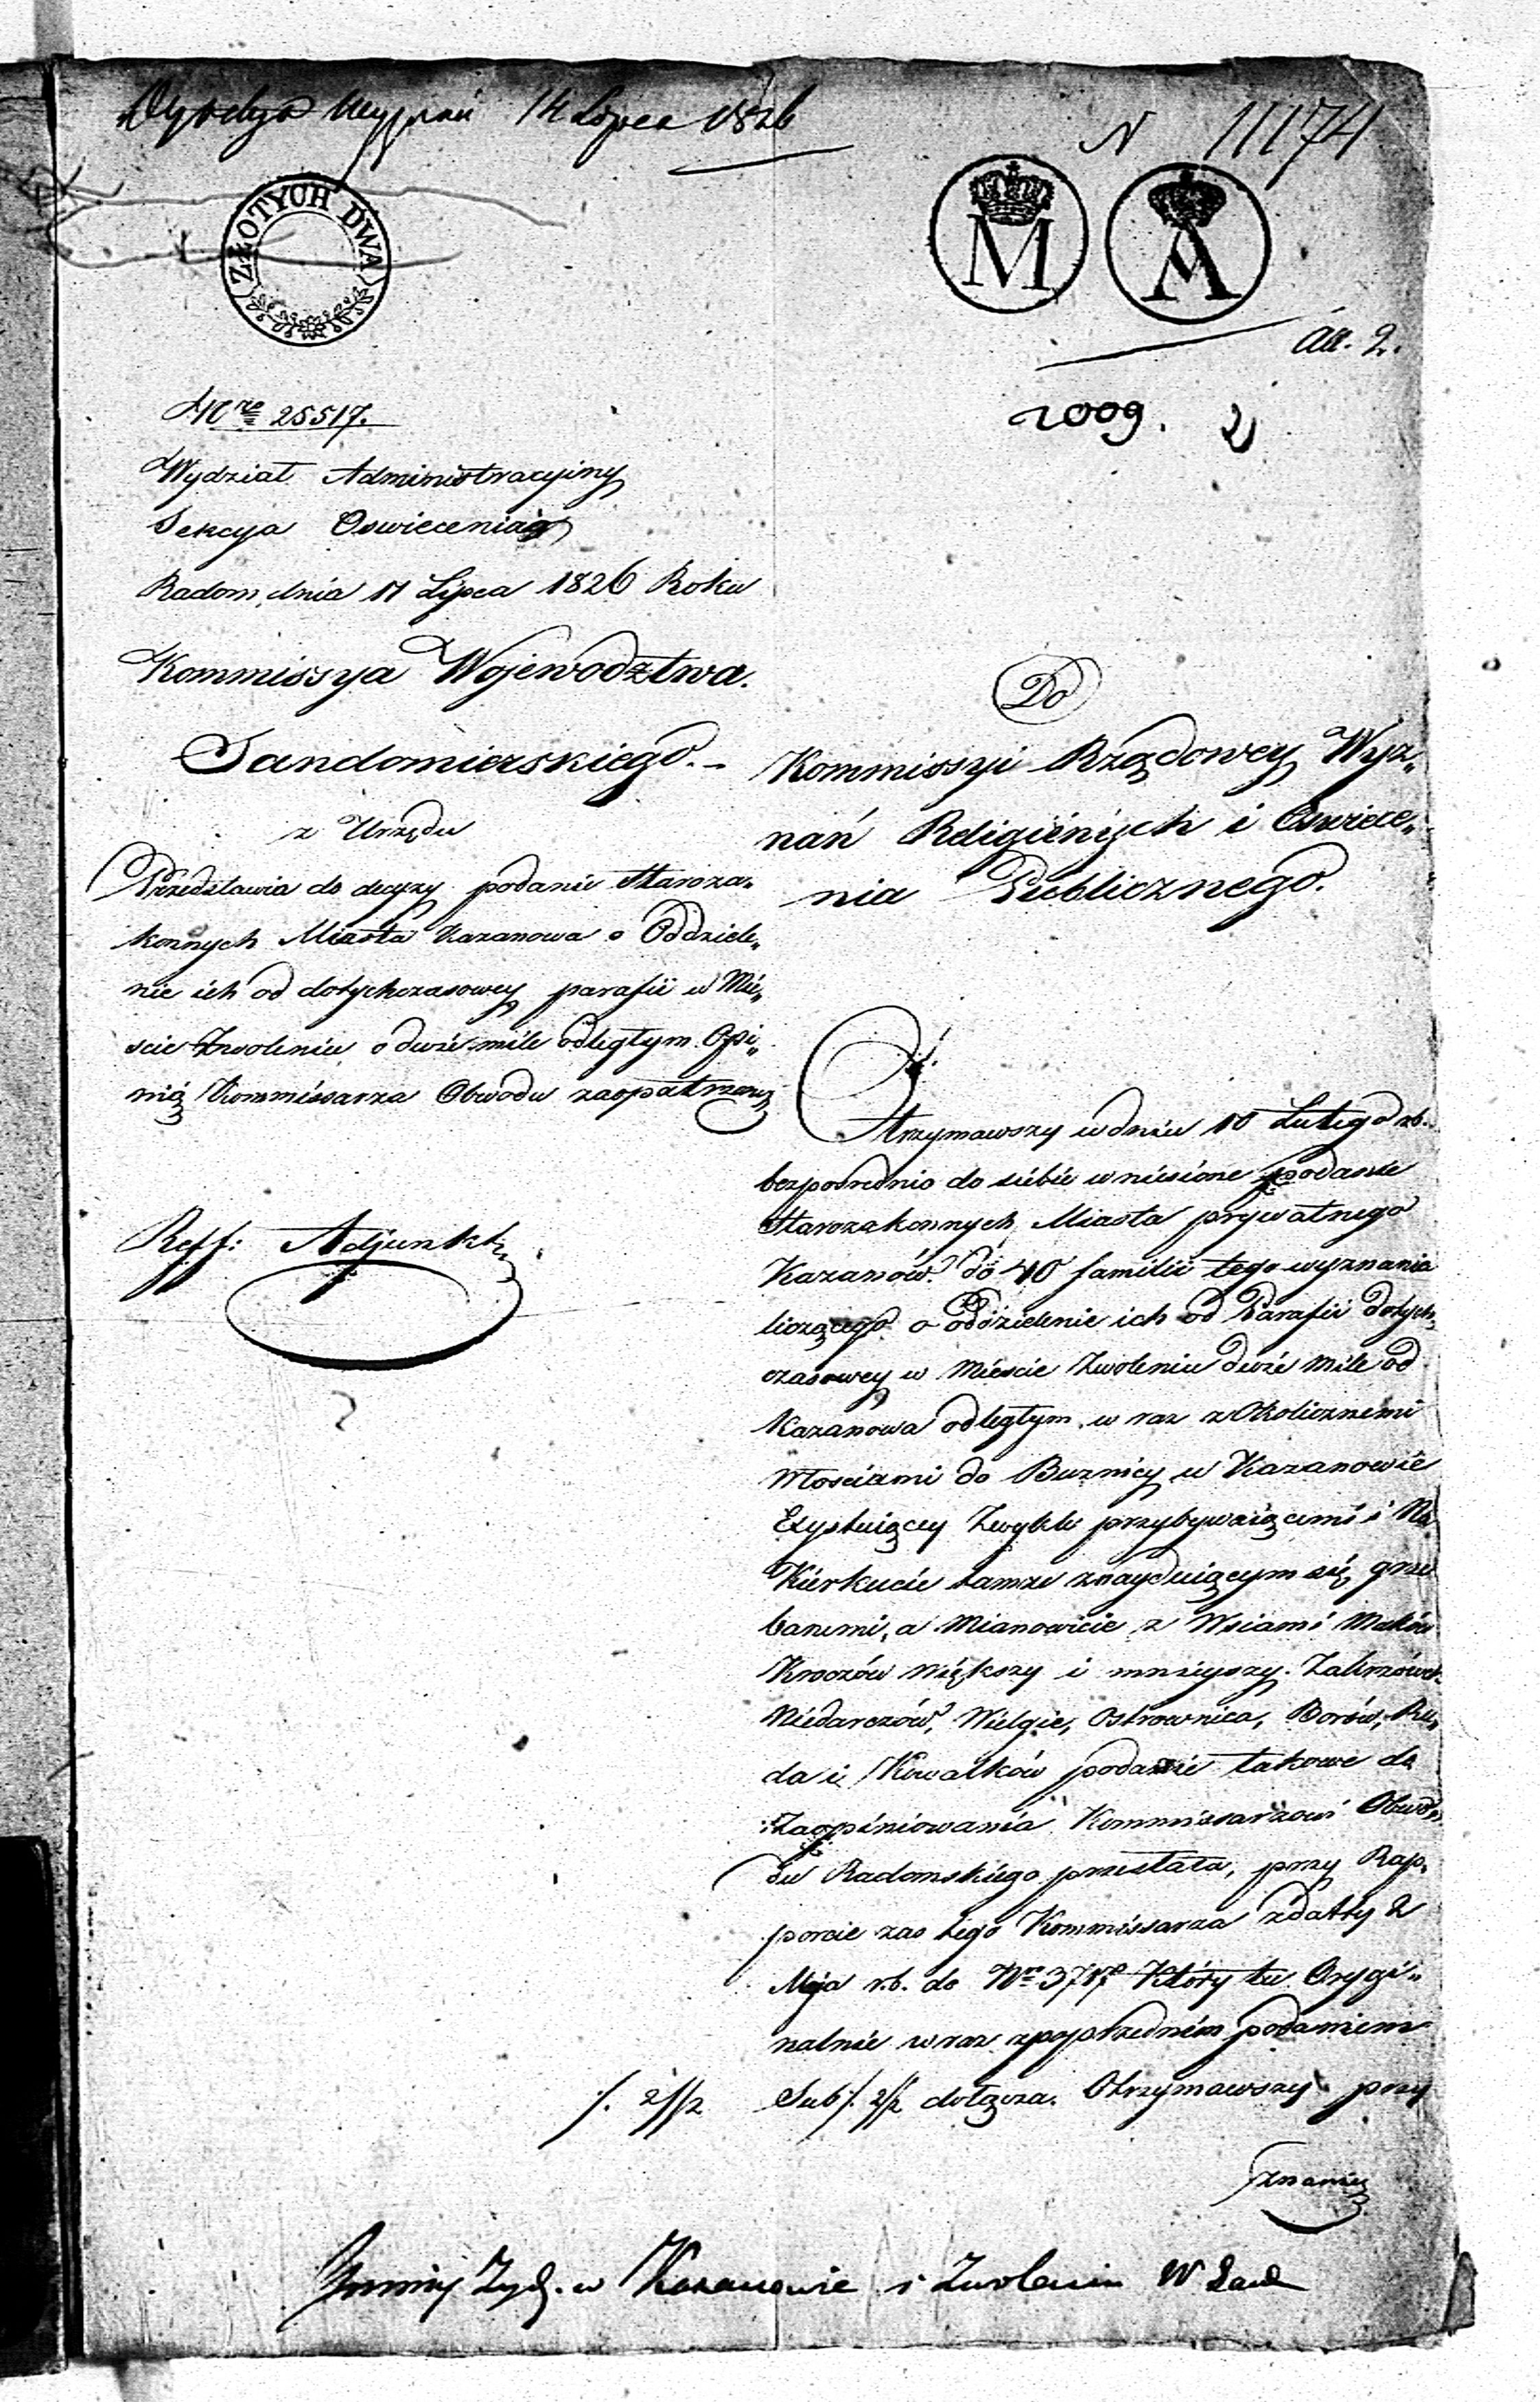 14 Lipca 1826
N 11174
ZŁOTYCH DWA
M A
2.
2009. 2
Nro 25517.
Wydział Administracyjny
Sekcya Oswiecenia
Radom, dnia 11 Lipca 1826 Roku
Kommissya Wojewodztwa
Sandomierskiego.
z Urzędu
Przedstawia do decyzy podanie Staroza„
konnych Miasta Kazanowa o Oddziele„
nie ich od dotychczasowey parafii w Mie„
scie Zwoleniu o dwie mile odległym Opi„
nią Kommissarza Obwodu zaopatrzone
Reff: Adjunkt
Do
Kommissyi Rządowey Wyz„
nań Religiinych i Oswiece„
nia Publicznego.
Otrzymawszy w dniu 10 Lutego rb.
bezposrednio do siebie wniesione podanie
Starozakonnych Miasta prywatnego
Kazanów do 40 familii tego wyznania
liczącego o oddzielenie ich od Parafii dotych„
czasowey w Miescie Zwoleniu dwie mile od
Kazanowa odległym w raz z Okolicznemi
Włosciami do Buznicy w Kazanowie
Exystuiącey Zwykle przybywaiącemi i Na
Kierkucie tamze znayduiącym się grze
banemi, a Mianowicie z Wsiami Maków
Kroczów większy i mnieyszy. Zakrzówek
Niedarczów, Wielgie, Ostrownica, Borów, Ru„
da i Kowalków podanie takowe do
Zaopiniowania Kommissarzowi Obwo„
du Radomskiego przesłała, przy Rap„
porcie zas tego Kommissarza z datty 2
Maja r.b. do Nro 3717 Który tu Orygi„
nalnie wraz z poprzedniem podaniem
Sub ./. 2/2 dołącza. Otrzymawszy przy
./. 2/2
znaniu
Gminy Żyd. w Kazanowie i Zwoleniu W Sand